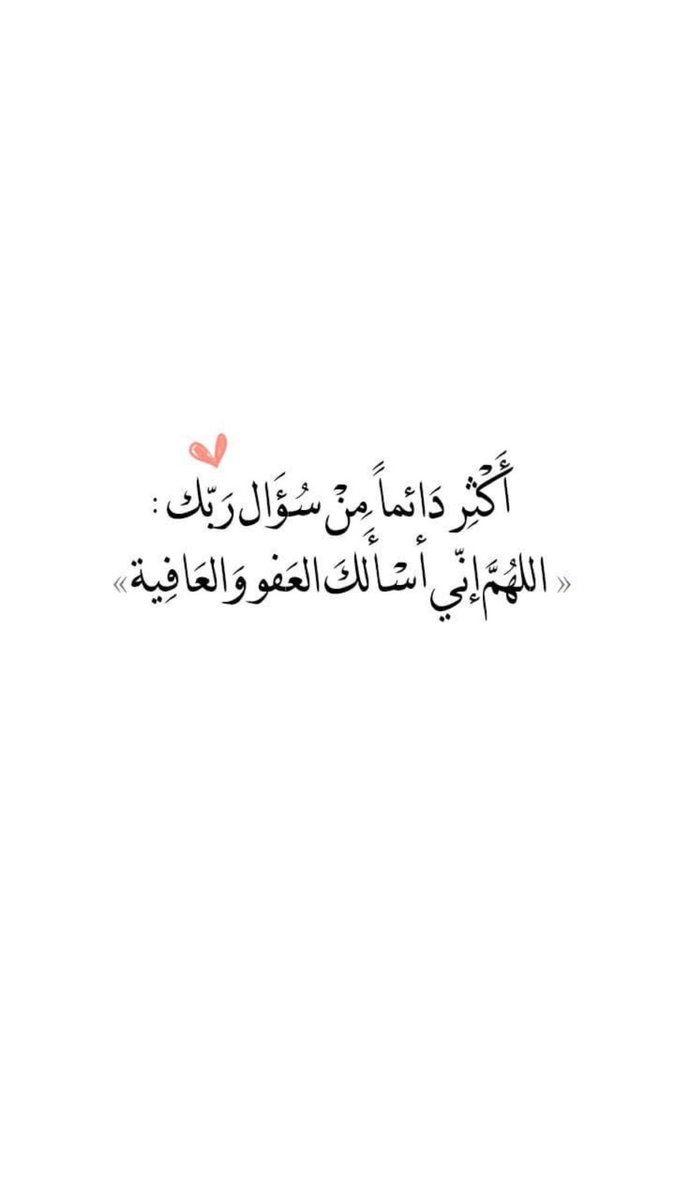 أَكْثِر دَائماً مِنْ سُؤَال رَبّك :
« اللهُمَّ إنّي أسْأَلكَ العَفو وَالعَافِية »